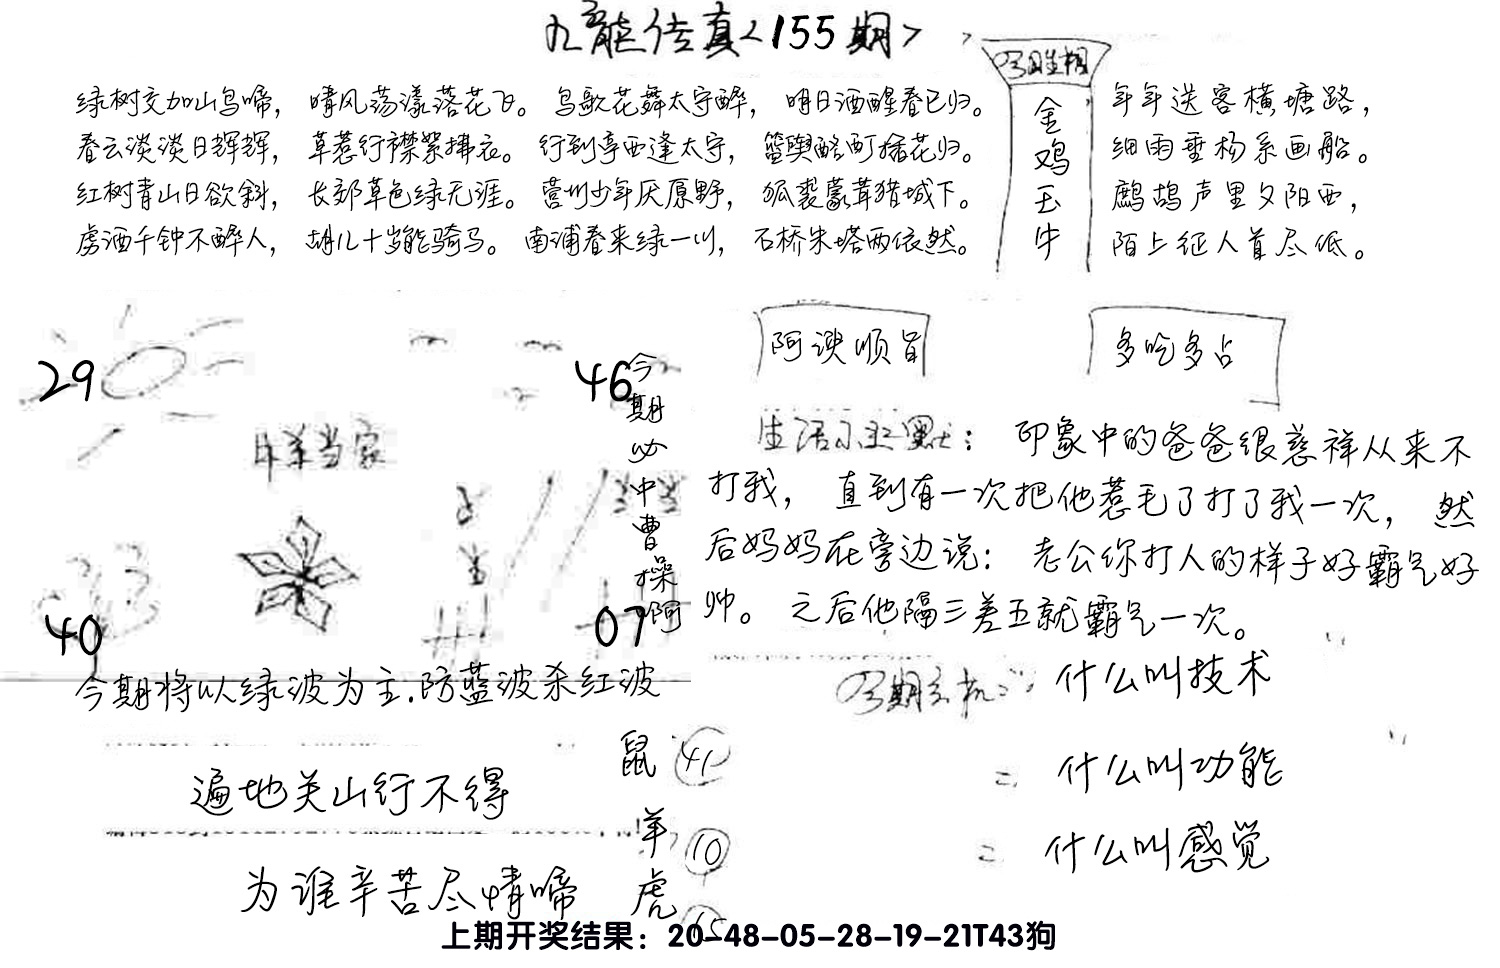 九龙传真<155期>
绿树交加山鸟啼， 晴风荡漾落花飞。 鸟歌花舞太守醉， 明日酒醒春已归。
春云淡淡日辉辉， 草惹行襟絮拂衣。 行到亭西逢太守， 篮舆酩酊插花归。
红树青山日欲斜， 长郊草色绿无涯。 营州少年厌原野， 狐裘蒙茸猎城下。
虏酒千钟不醉人， 胡儿十岁能骑马。 南浦春来绿一川， 石桥朱塔两依然。
金鸡玉牛
年年送客横塘路，
细雨垂杨系画船。
鹧鸪声里夕阳西，
陌上征人首尽低。
29
46
40
07
今期必中曹操阿
今期将以绿波为主.防蓝波杀红波
阿谀顺旨
多吃多占
生活小幽默： 印象中的爸爸很慈祥从来不
打我， 直到有一次把他惹毛了打了我一次， 然
后妈妈在旁边说： 老公你打人的样子好霸气好
帅。 之后他隔三差五就霸气一次。
今期玄机 什么叫技术
= 什么叫功能
= 什么叫感觉
遍地关山行不得
为谁辛苦尽情啼
鼠 41
羊 10
虎
上期开奖结果：20-48-05-28-19-21T43狗